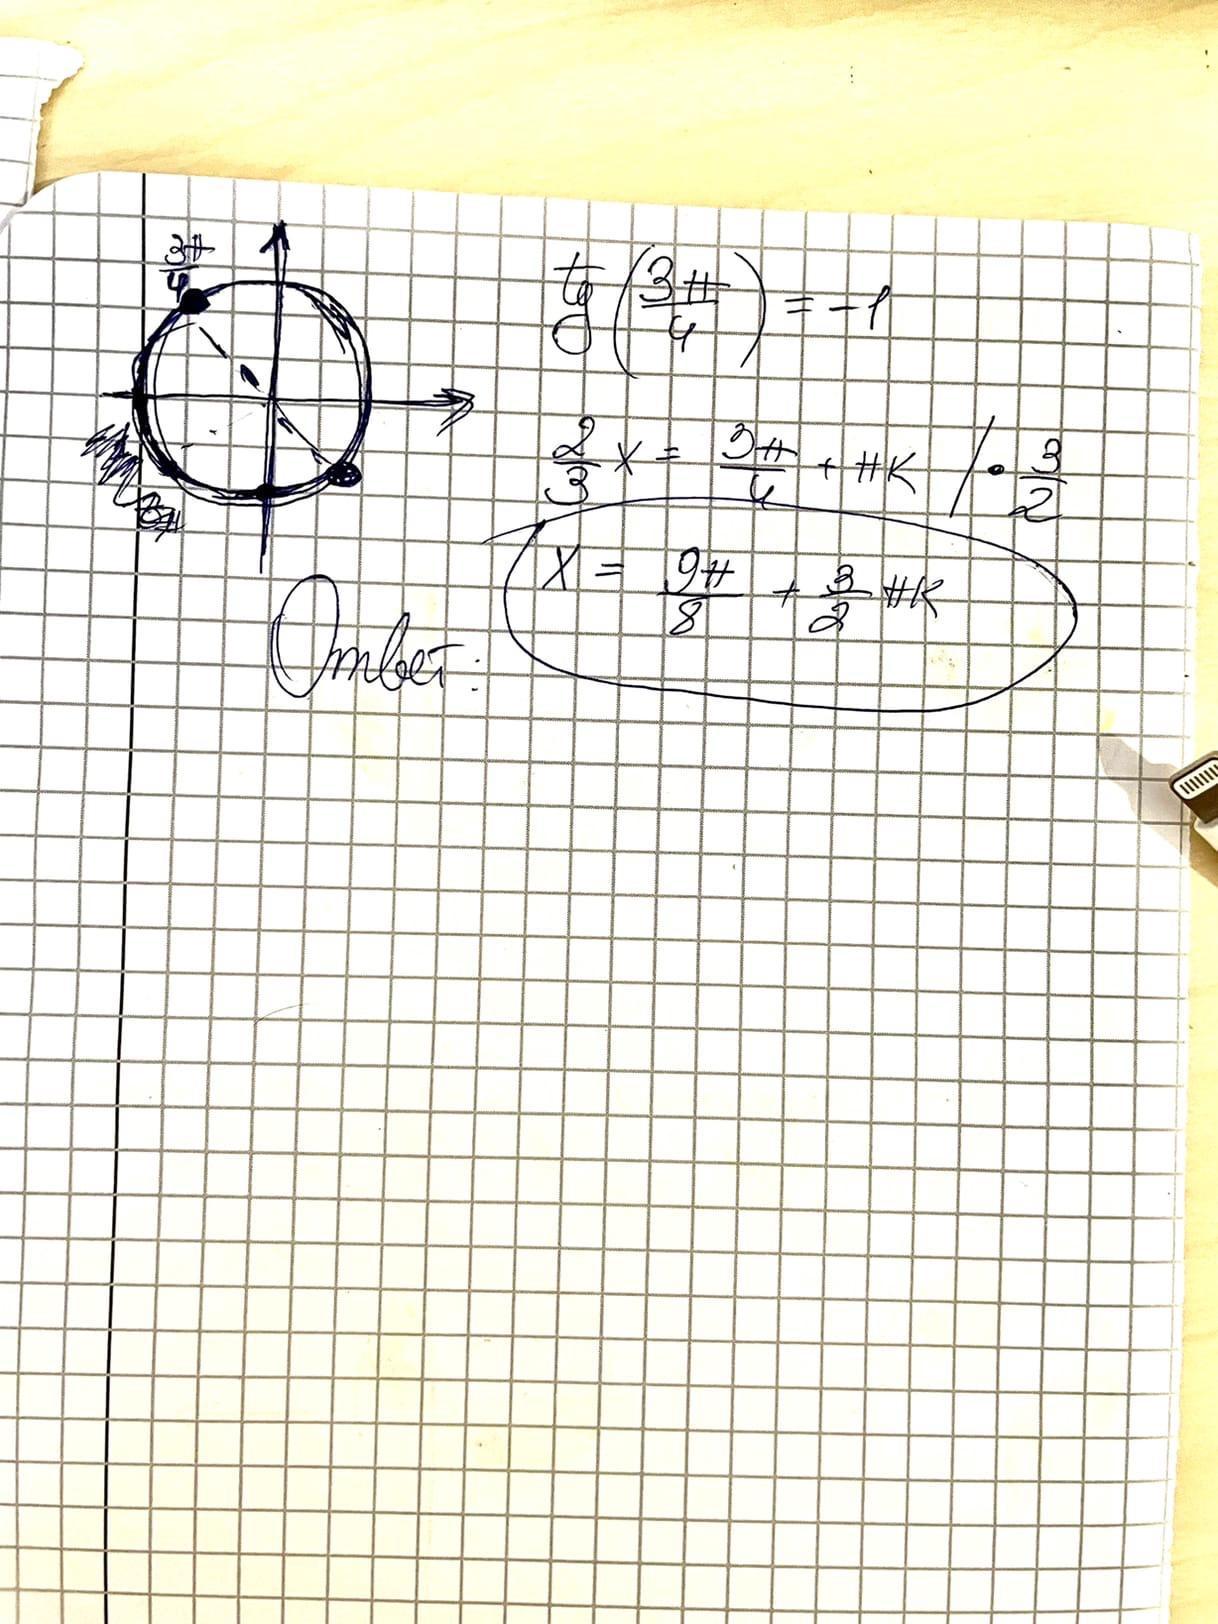 3π/4
tg(3π/4) = -1
2/3 x = 3π/4 + πK / · 3/2
x = 9π/8 + 3/2 πK
Ответ: